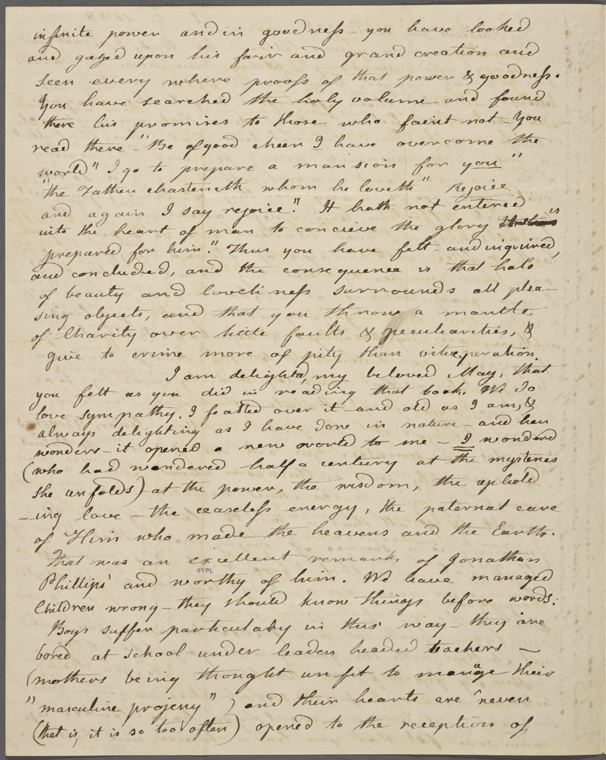 infinite power and in goodness - you have looked
and gazed upon his fair and grand creation and
seen every where proofs of that power & goodness.
You have searched the holy volume and found
there his promises to those who faint not - You
read there "Be of good cheer I have overcome the
world" I go to prepare a mansion for you"
"the Father chasteneth whom he loveth" Rejoice
and again I say rejoice." It hath not entered
into the heart of man to conceive the glory
prepared for him." Thus you have felt and inquired,
and concluded, and the consequence is that halo
of beauty and loveliness surrounds all plea-
sing objects, and that you throw a mantle
of Charity over little faults & peculiarities, &
give to crime more of pity than vituperation.
I am delighted, my beloved May, that
you felt as you did in reading that book. We do
love sympathy. I feasted over it - and old as I am, &
always delighting as I have done in nature - and her
wonders - it opened a new world to me - I wondered
(who had wondered half a century at the mysteries
she unfolds) at the power, the wisdom, the uphold
-ing love - the ceaseless energy, the paternal care
of Him who made the heavens and the Earth.
That was an excellent remark of Jonathan
Phillips' and worthy of him. We have managed
NYPL
Children wrong - they should know things before words.
Boys suffer particularly in this way - they are
bored at school under leaden headed teachers -
(mothers being thought unfit to manage their
"masculine projeny") and their hearts are never
(that is, it is so too often) opened to the reception of